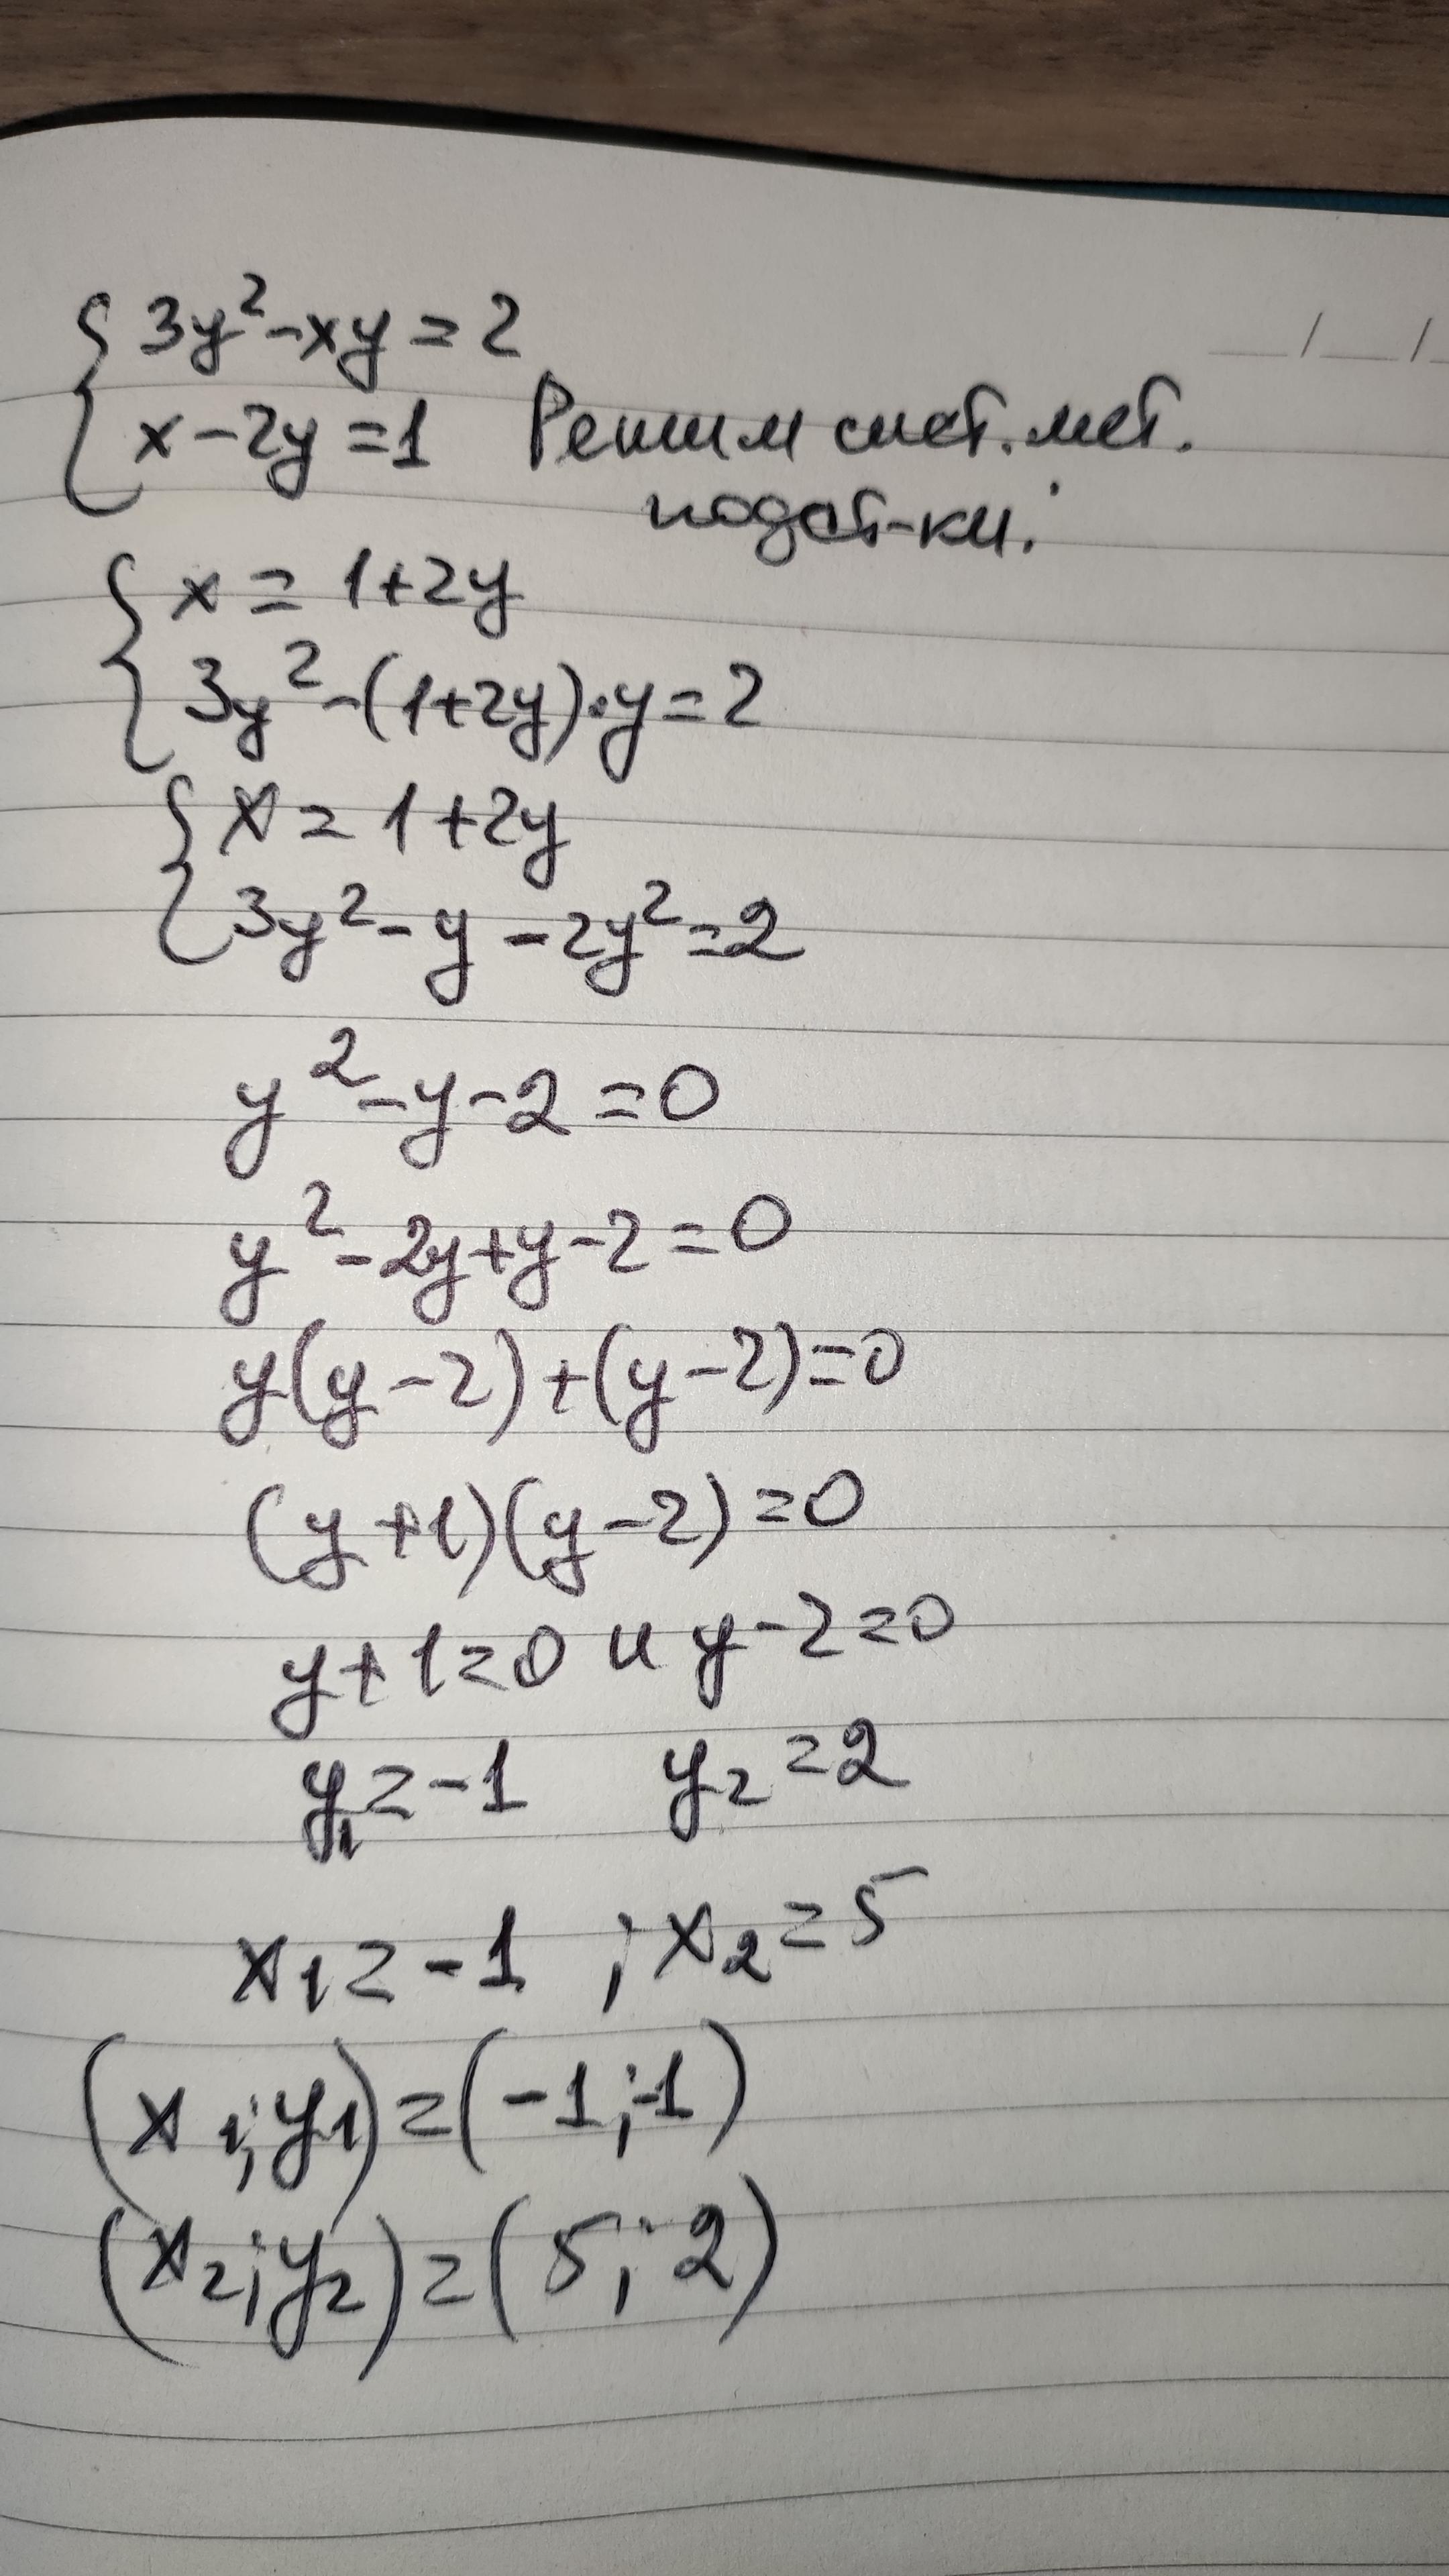 { 3y²-xy=2
{ x-2y=1 Решим сист. мет.
подст-ки.
{ x=1+2y
{ 3y²-(1+2y)·y=2
{ x=1+2y
{ 3y²-y-2y²=2
y²-y-2=0
y²-2y+y-2=0
y(y-2)+(y-2)=0
(y+1)(y-2)=0
y+1=0 и y-2=0
y₁=-1 y₂=2
x₁=-1 ; x₂=5
(x₁;y₁)=(-1;-1)
(x₂;y₂)=(5;2)